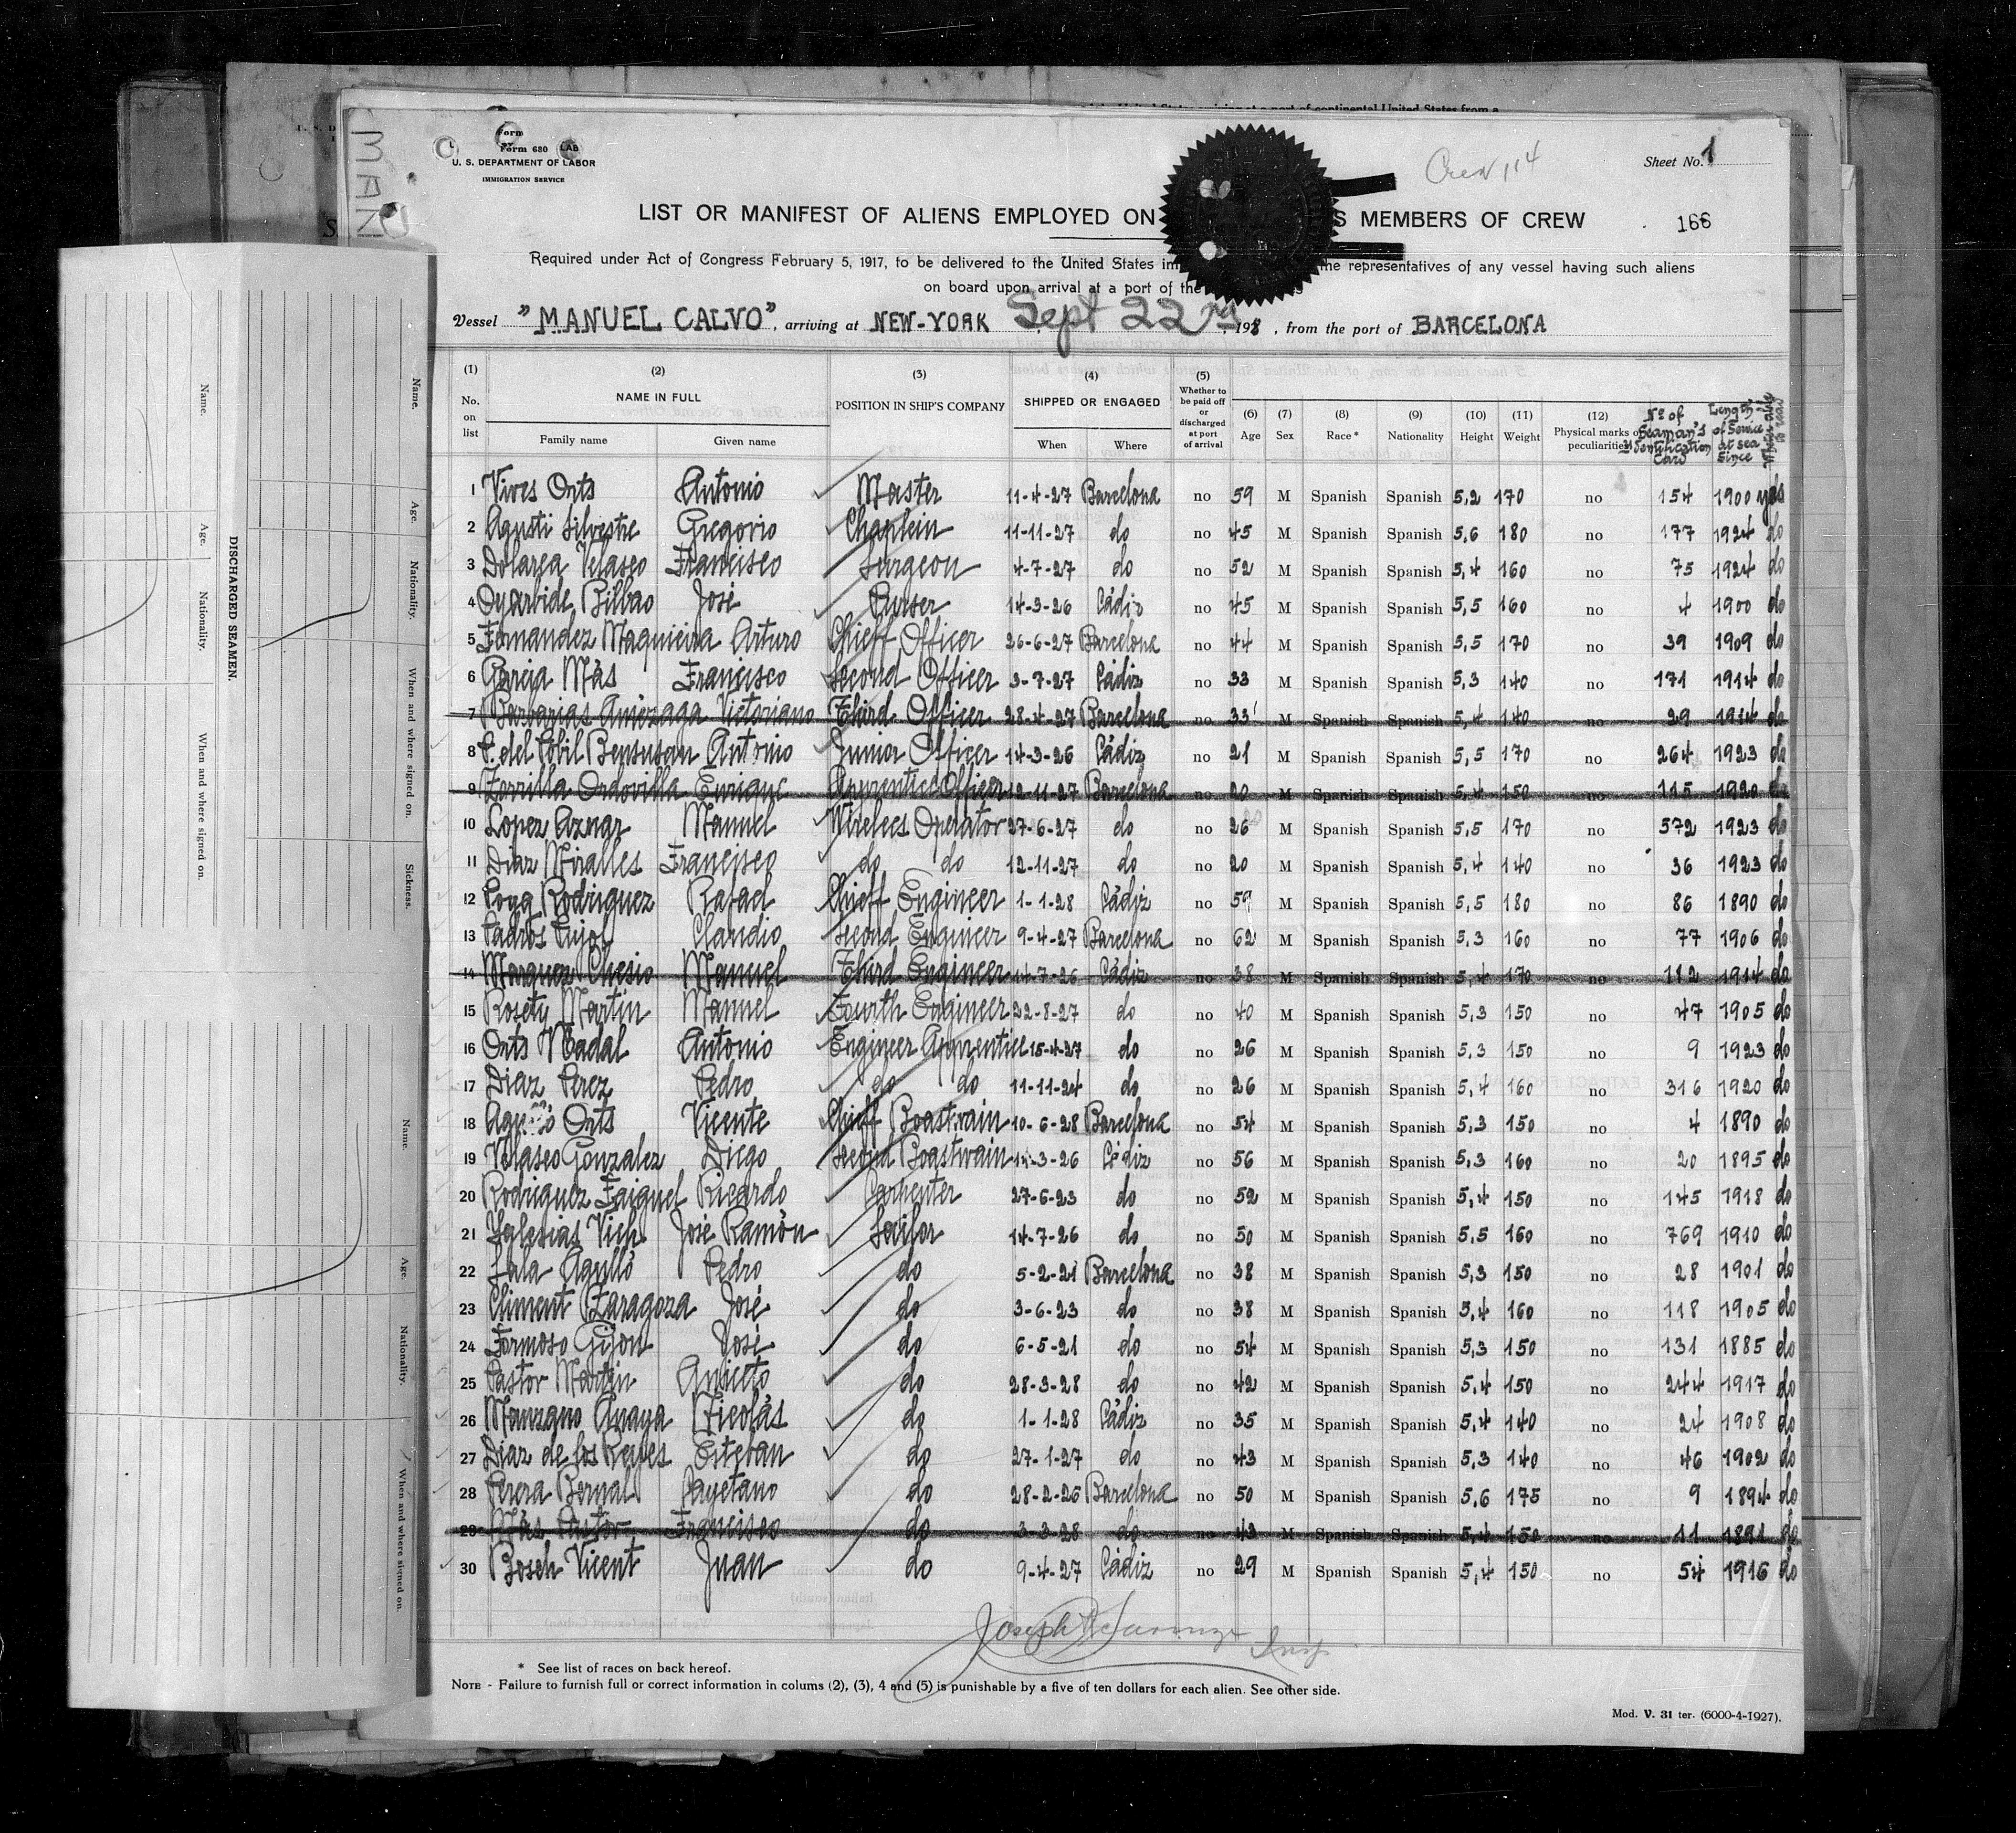 Form
Form 680 LAB
U. S. DEPARTMENT OF LABOR
IMMIGRATION SERVICE
Crew 114
Sheet No. 1
LIST OR MANIFEST OF ALIENS EMPLOYED ON S MEMBERS OF CREW
166
Required under Act of Congress February 5, 1917, to be delivered to the United States im he representatives of any vessel having such aliens
on board upon arrival at a port of the
Vessel "MANUEL CALVO", arriving at NEW-YORK Sept 22nd, 198, from the port of BARCELONA
(1) No. on list (2) NAME IN FULL Family name Given name (3) POSITION IN SHIP'S COMPANY (4) SHIPPED OR ENGAGED When Where (5) Whether to be paid off or discharged at port of arrival (6) Age (7) Sex (8) Race * (9) Nationality (10) Height (11) Weight (12) Physical marks or peculiarities Nº of Seaman's Identification Card Length of Service at sea Since Whether able to read
1 Vives Orts Antonio Master 11-4-27 Barcelona no 59 M Spanish Spanish 5,2 170 no 154 1900 yes
2 Agusti Silvestre Gregorio Chaplein 11-11-27 do no 45 M Spanish Spanish 5,6 180 no 177 1924 do
3 Dolarea Velasco Francisco Surgeon 4-7-27 do no 52 M Spanish Spanish 5,4 160 no 75 1924 do
4 Oyarbide Bilbao José Purser 14-3-26 Cádiz no 45 M Spanish Spanish 5,5 160 no 4 1900 do
5 Fernandez Maquieira Arturo Chieff Officer 26-6-27 Barcelona no 44 M Spanish Spanish 5,5 170 no 39 1909 do
6 Garcia Más Francisco Second Officer 3-7-27 Cádiz no 33 M Spanish Spanish 5,3 140 no 171 1914 do
7 Barbarias Amezaga Victoriano Third Officer 28-4-27 Barcelona no 33 M Spanish Spanish 5,4 140 no 29 1914 do
8 P. del Pobil Bensusan Antonio Junior Officer 14-3-26 Cádiz no 21 M Spanish Spanish 5,5 170 no 264 1923 do
9 Zorrilla Ordovilla Enrique Apprentice Officer 12-11-27 Barcelona no 20 M Spanish Spanish 5,4 150 no 115 1920 do
10 Lopez Aznar Manuel Wirelees Operator 27-6-27 do no 26 M Spanish Spanish 5,5 170 no 572 1923 do
11 Diaz Miralles Francisco do do 12-11-27 do no 20 M Spanish Spanish 5,4 140 no 36 1923 do
12 Poga Rodriguez Rafael Chieff Engineer 1-1-28 Cádiz no 59 M Spanish Spanish 5,5 180 no 86 1890 do
13 Padrós Pujol Claudio Second Engineer 9-4-27 Barcelona no 62 M Spanish Spanish 5,3 160 no 77 1906 do
14 Marquez Chesio Manuel Third Engineer 14-7-26 Cádiz no 38 M Spanish Spanish 5,4 170 no 182 1914 do
15 Rosety Martin Manuel Fourth Engineer 22-8-27 do no 40 M Spanish Spanish 5,3 150 no 47 1905 do
16 Orts Nadal Antonio Engineer Apprentice 15-4-27 do no 26 M Spanish Spanish 5,3 150 no 9 1923 do
17 Diaz Perez Pedro do do 11-11-24 do no 26 M Spanish Spanish 5,4 160 no 316 1920 do
18 Orts Vicente Chieff Boastwain 10-6-28 Barcelona no 54 M Spanish Spanish 5,3 150 no 4 1890 do
19 Velasco Gonzalez Diego Second Boastwain 14-3-26 Cádiz no 56 M Spanish Spanish 5,3 160 no 20 1895 do
20 Rodriguez Faiguel Ricardo Carpenter 27-6-23 do no 52 M Spanish Spanish 5,4 150 no 145 1918 do
21 Yglesias Vich José Ramón Sailor 14-7-26 do no 50 M Spanish Spanish 5,5 160 no 769 1910 do
22 Lala Agulló Pedro do 5-2-21 Barcelona no 38 M Spanish Spanish 5,3 150 no 28 1901 do
23 Climent Zaragoza José do 3-6-23 do no 38 M Spanish Spanish 5,4 160 no 118 1905 do
24 Formoso Gijon José do 6-5-21 do no 54 M Spanish Spanish 5,3 150 no 131 1885 do
25 Pastor Martin Aniceto do 28-3-28 do no 42 M Spanish Spanish 5,4 150 no 244 1917 do
26 Manzano Anaya Nicolás do 1-1-28 Cádiz no 35 M Spanish Spanish 5,4 140 no 24 1908 do
27 Diaz de los Reyes Esteban do 27-1-27 do no 43 M Spanish Spanish 5,3 140 no 46 1902 do
28 Perera Bernal Cayetano do 28-2-26 Barcelona no 50 M Spanish Spanish 5,6 175 no 9 1894 do
29 Más Pastor Francisco do 3-3-28 do no 43 M Spanish Spanish 5,4 150 no 11 1891 do
30 Bosch Vicent Juan do 9-4-27 Cádiz no 29 M Spanish Spanish 5,4 150 no 54 1916 do
Joseph Insp
* See list of races on back hereof.
NOTE - Failure to furnish full or correct information in colums (2), (3), 4 and (5) is punishable by a five of ten dollars for each alien. See other side.
Mod. V. 31 ter. (6000-4-1927).
DISCHARGED SEAMEN.
Name. Age. Nationality. When and where signed on.
Name. Age. Nationality. When and where signed on. Sickness.
Name. Age. Nationality. When and where signed on.